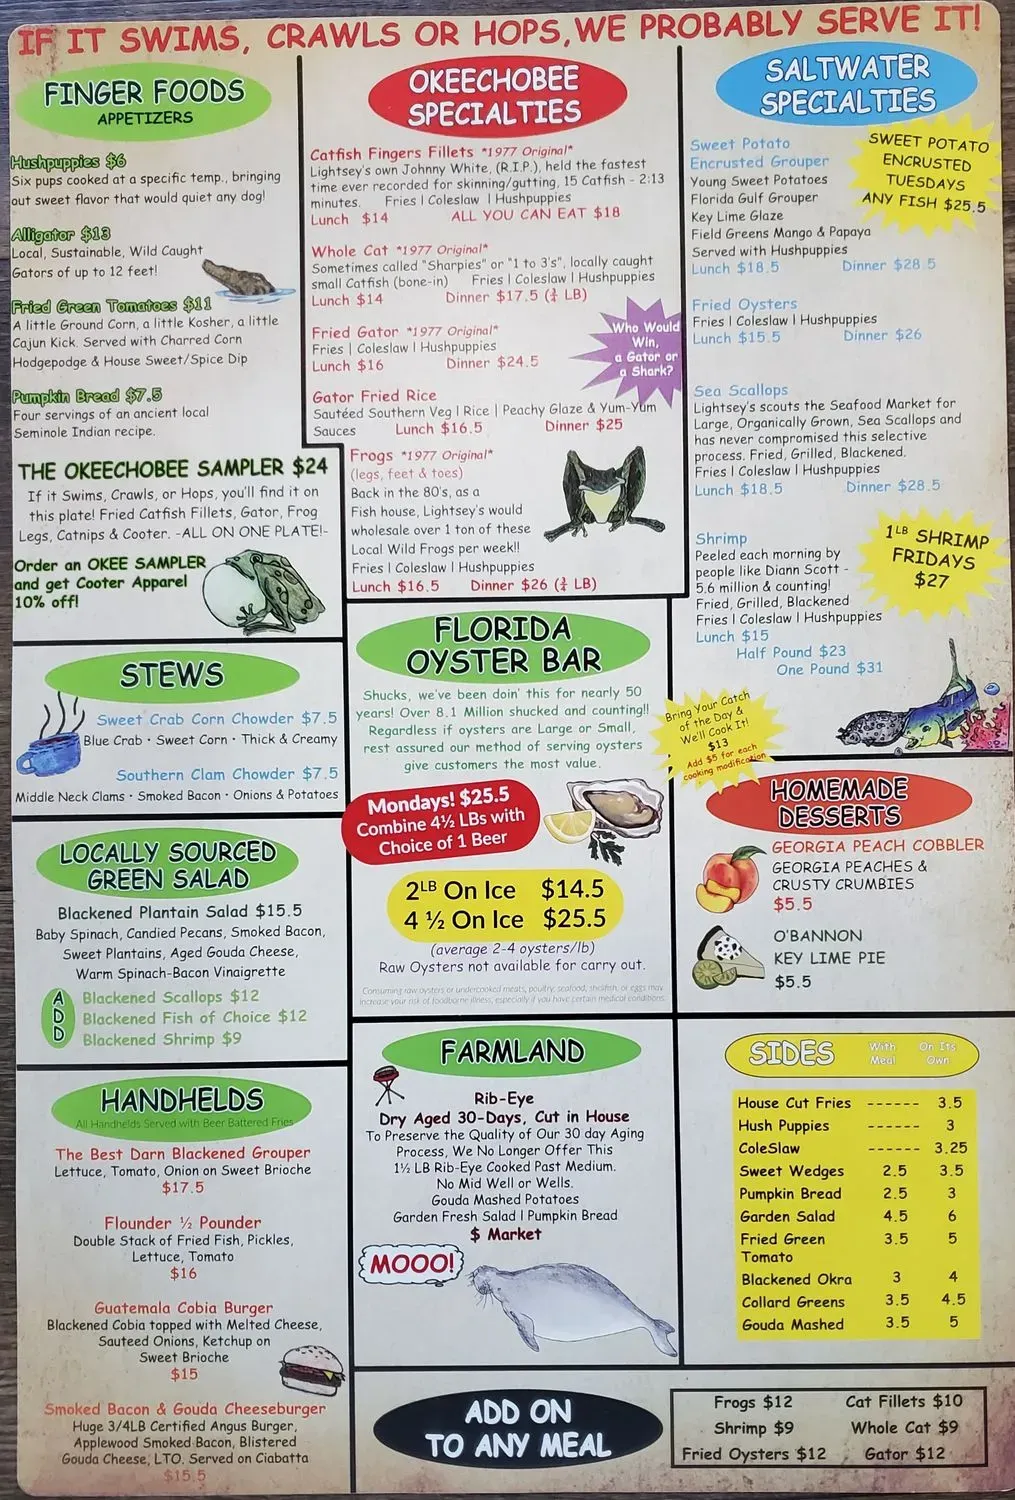 IF IT SWIMS, CRAWLS OR HOPS, WE PROBABLY SERVE IT!
FINGER FOODS
APPETIZERS
Hushpuppies $6
Six pups cooked at a specific temp., bringing
out sweet flavor that would quiet any dog!
Alligator $13
Local, Sustainable, Wild Caught
Gators of up to 12 feet!
Fried Green Tomatoes $11
A little Ground Corn, a little Kosher, a little
Cajun Kick. Served with Charred Corn
Hodgepodge & House Sweet/Spice Dip
Pumpkin Bread $7.5
Four servings of an ancient local
Seminole Indian recipe.
THE OKEECHOBEE SAMPLER $24
If it Swims, Crawls, or Hops, you'll find it on
this plate! Fried Catfish Fillets, Gator, Frog
Legs, Catnips & Cooter. -ALL ON ONE PLATE!-
Order an OKEE SAMPLER
and get Cooter Apparel
10% off!
STEWS
Sweet Crab Corn Chowder $7.5
Blue Crab • Sweet Corn • Thick & Creamy
Southern Clam Chowder $7.5
Middle Neck Clams • Smoked Bacon • Onions & Potatoes
LOCALLY SOURCED
GREEN SALAD
Blackened Plantain Salad $15.5
Baby Spinach, Candied Pecans, Smoked Bacon,
Sweet Plantains, Aged Gouda Cheese,
Warm Spinach-Bacon Vinaigrette
ADD
Blackened Scallops $12
Blackened Fish of Choice $12
Blackened Shrimp $9
HANDHELDS
All Handhelds Served with Beer Battered Fries
The Best Darn Blackened Grouper
Lettuce, Tomato, Onion on Sweet Brioche
$17.5
Flounder ½ Pounder
Double Stack of Fried Fish, Pickles,
Lettuce, Tomato
$16
Guatemala Cobia Burger
Blackened Cobia topped with Melted Cheese,
Sauteed Onions, Ketchup on
Sweet Brioche
$15
Smoked Bacon & Gouda Cheeseburger
Huge 3/4LB Certified Angus Burger,
Applewood Smoked Bacon, Blistered
Gouda Cheese, LTO. Served on Ciabatta
$15.5
OKEECHOBEE
SPECIALTIES
Catfish Fingers Fillets *1977 Original*
Lightsey's own Johnny White, (R.I.P.), held the fastest
time ever recorded for skinning/gutting, 15 Catfish - 2:13
minutes. Fries | Coleslaw | Hushpuppies
Lunch $14 ALL YOU CAN EAT $18
Whole Cat *1977 Original*
Sometimes called "Sharpies" or "1 to 3's", locally caught
small Catfish (bone-in) Fries | Coleslaw | Hushpuppies
Lunch $14 Dinner $17.5 (¾ LB)
Fried Gator *1977 Original*
Fries | Coleslaw | Hushpuppies
Lunch $16 Dinner $24.5
Who Would
Win,
a Gator or
a Shark?
Gator Fried Rice
Sautéed Southern Veg | Rice | Peachy Glaze & Yum-Yum
Sauces Lunch $16.5 Dinner $25
Frogs *1977 Original*
(legs, feet & toes)
Back in the 80's, as a
Fish house, Lightsey's would
wholesale over 1 ton of these
Local Wild Frogs per week!!
Fries | Coleslaw | Hushpuppies
Lunch $16.5 Dinner $26 (¾ LB)
FLORIDA
OYSTER BAR
Shucks, we've been doin' this for nearly 50
years! Over 8.1 Million shucked and counting!!
Regardless if oysters are Large or Small,
rest assured our method of serving oysters
give customers the most value.
Mondays! $25.5
Combine 4½ LBs with
Choice of 1 Beer
2LB On Ice $14.5
4 ½ On Ice $25.5
(average 2-4 oysters/lb)
Raw Oysters not available for carry out.
Consuming raw oysters or undercooked meats, poultry, seafood, shellfish, or eggs may
increase your risk of foodborne illness, especially if you have certain medical conditions.
FARMLAND
Rib-Eye
Dry Aged 30-Days, Cut in House
To Preserve the Quality of Our 30 day Aging
Process, We No Longer Offer This
1½ LB Rib-Eye Cooked Past Medium.
No Mid Well or Wells.
Gouda Mashed Potatoes
Garden Fresh Salad | Pumpkin Bread
$ Market
MOOO!
SALTWATER
SPECIALTIES
Sweet Potato
Encrusted Grouper
Young Sweet Potatoes
Florida Gulf Grouper
Key Lime Glaze
Field Greens Mango & Papaya
Served with Hushpuppies
Lunch $18.5 Dinner $28.5
SWEET POTATO
ENCRUSTED
TUESDAYS
ANY FISH $25.5
Fried Oysters
Fries | Coleslaw | Hushpuppies
Lunch $15.5 Dinner $26
Sea Scallops
Lightsey's scouts the Seafood Market for
Large, Organically Grown, Sea Scallops and
has never compromised this selective
process. Fried, Grilled, Blackened.
Fries | Coleslaw | Hushpuppies
Lunch $18.5 Dinner $28.5
Shrimp
Peeled each morning by
people like Diann Scott -
5.6 million & counting!
Fried, Grilled, Blackened
Fries | Coleslaw | Hushpuppies
Lunch $15
Half Pound $23
One Pound $31
1LB SHRIMP
FRIDAYS
$27
Bring Your Catch
of the Day &
We'll Cook It!
$13
Add $5 for each
cooking modification
HOMEMADE
DESSERTS
GEORGIA PEACH COBBLER
GEORGIA PEACHES &
CRUSTY CRUMBIES
$5.5
O'BANNON
KEY LIME PIE
$5.5
SIDES With Meal On Its Own
House Cut Fries ------ 3.5
Hush Puppies ------ 3
ColeSlaw ------ 3.25
Sweet Wedges 2.5 3.5
Pumpkin Bread 2.5 3
Garden Salad 4.5 6
Fried Green 3.5 5
Tomato
Blackened Okra 3 4
Collard Greens 3.5 4.5
Gouda Mashed 3.5 5
ADD ON
TO ANY MEAL
Frogs $12 Cat Fillets $10
Shrimp $9 Whole Cat $9
Fried Oysters $12 Gator $12